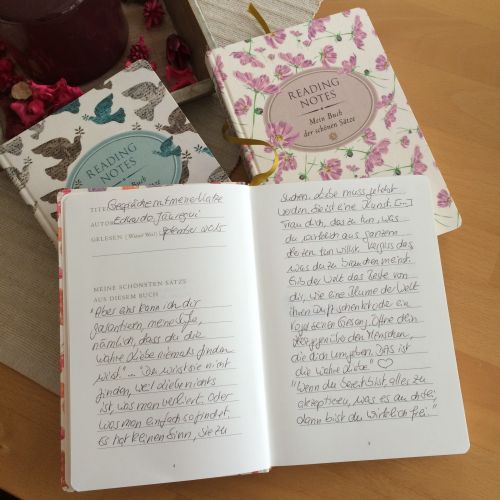 READING
NOTES
Buch
READING
NOTES
Mein Buch
der schönen Sätze
TITEL Gespräche mit meiner Katze
AUTOR Eduardo Jáuregui
GELESEN (Wann? Wo?) September 2015
MEINE SCHÖNSTEN SÄTZE
AUS DIESEM BUCH
"Aber eins kann ich dir
garantieren, meine Süße,
nämlich, dass du die
wahre Liebe niemals finden
wirst"... "Du wirst sie nicht
finden, weil Liebe nichts
ist, was man verliert oder
was man einfach so findet.
Es hat keinen Sinn, sie zu
suchen. Liebe muss gelebt
werden. Sie ist eine Kunst. [...]
Trau dich, das zu tun, was
du wirklich aus ganzem
Herzen tun willst. Vergiss das,
was du zu brauchen meinst.
Gib der Welt das Beste von
dir, wie eine Blume der Welt
ihren Duft schenkt oder ein
Vogel seinen Gesang. Öffne dein
Herz gegenüber den Menschen,
die dich umgeben. DAS ist
die wahre Liebe." ♡
"Wenn du bereit bist, alles zu
akzeptieren, was es auch sei,
dann bist du wirklich frei."